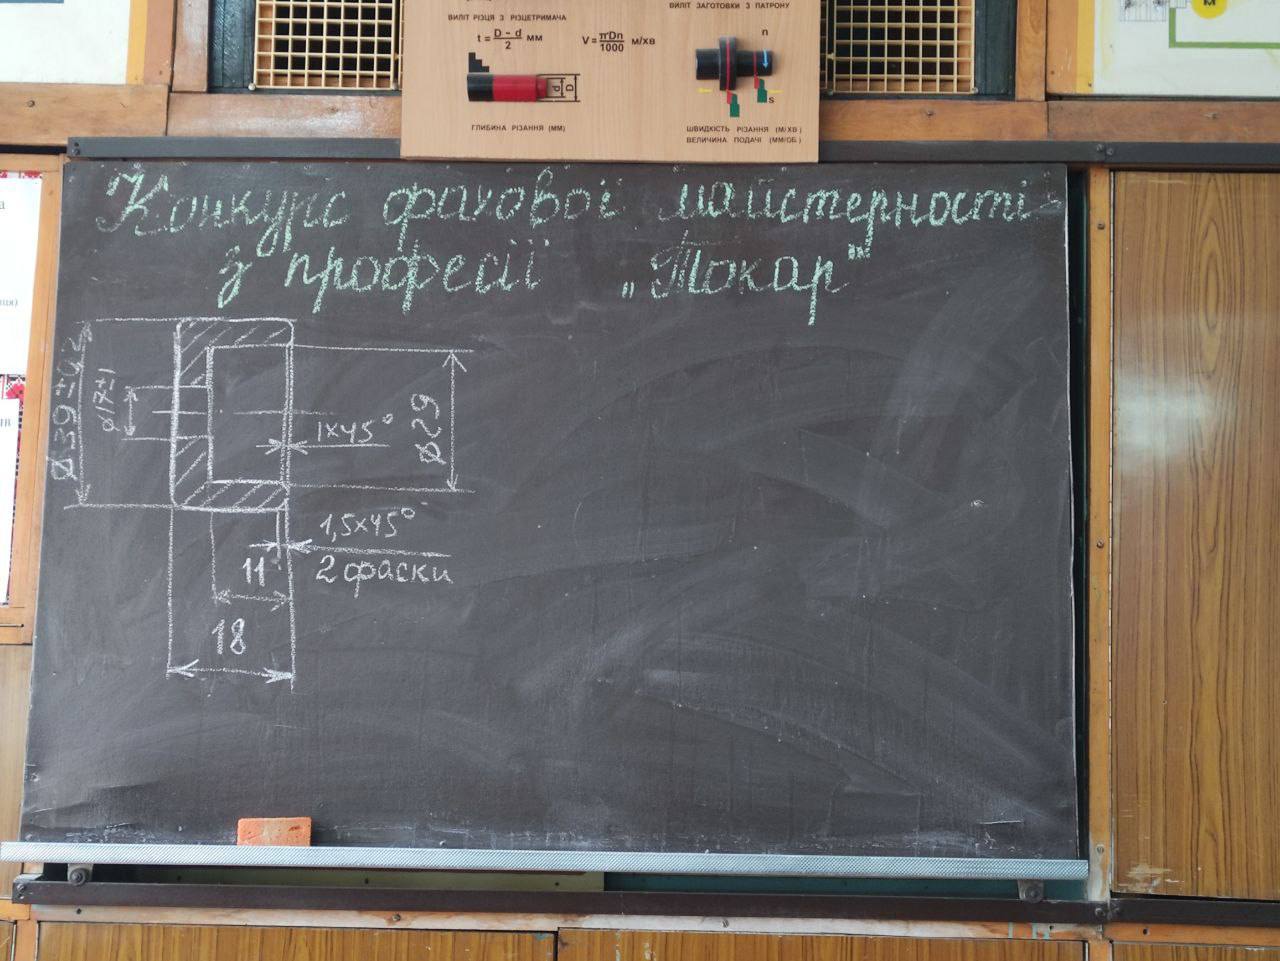 ВИЛІТ РІЗЦЯ З РІЗЦЕТРИМАЧА
ВИЛІТ ЗАГОТОВКИ З ПАТРОНУ
t = D - d / 2 ММ
V = πDn / 1000 М/ХВ
n
d
D
S
ГЛИБИНА РІЗАННЯ (ММ)
ШВИДКІСТЬ РІЗАННЯ (М/ХВ)
ВЕЛИЧИНА ПОДАЧІ (ММ/ОБ.)
М
Конкурс фахової майстерності
з професії „Токар"
ø39±0,2
ø17±1
1х45°
ø29
1,5х45°
2 фаски
11
18